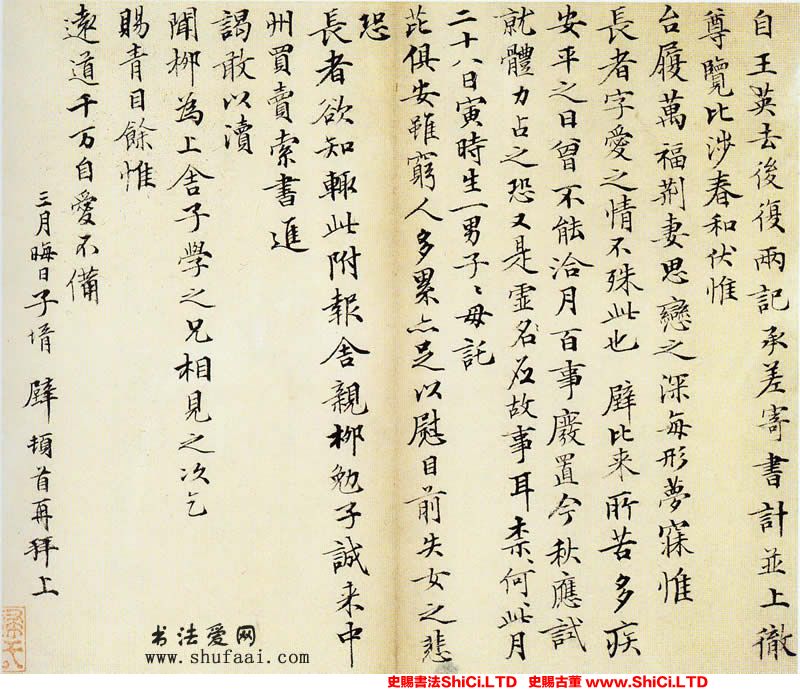 自王英去後復兩記承差寄書計並上徹
尊覽比涉春和伏惟
台履萬福荆妻思戀之深每形夢寐惟
長者字愛之情不殊此也 辟比来所苦多疾
安平之日曾不能洽月百事廢置今秋應試
就體力占之恐又是虛名應故事耳柰何此月
二十八日寅時生一男子〻母託
芘俱安雖窮人多累亦足以慰目前失女之悲
恐
長者欲知輙此附報舍親柳勉子誠来中
州買賣索書進
謁敢以瀆
聞柳為上舍子學之兄相見之次乞
賜青目餘惟
遠道千万自愛不備
三月晦日子壻 辟 頓首再拜上
书法爱网
www.shufaai.com
史賜書法ShiCi.LTD 史賜古董 www.ShiCi.LTD